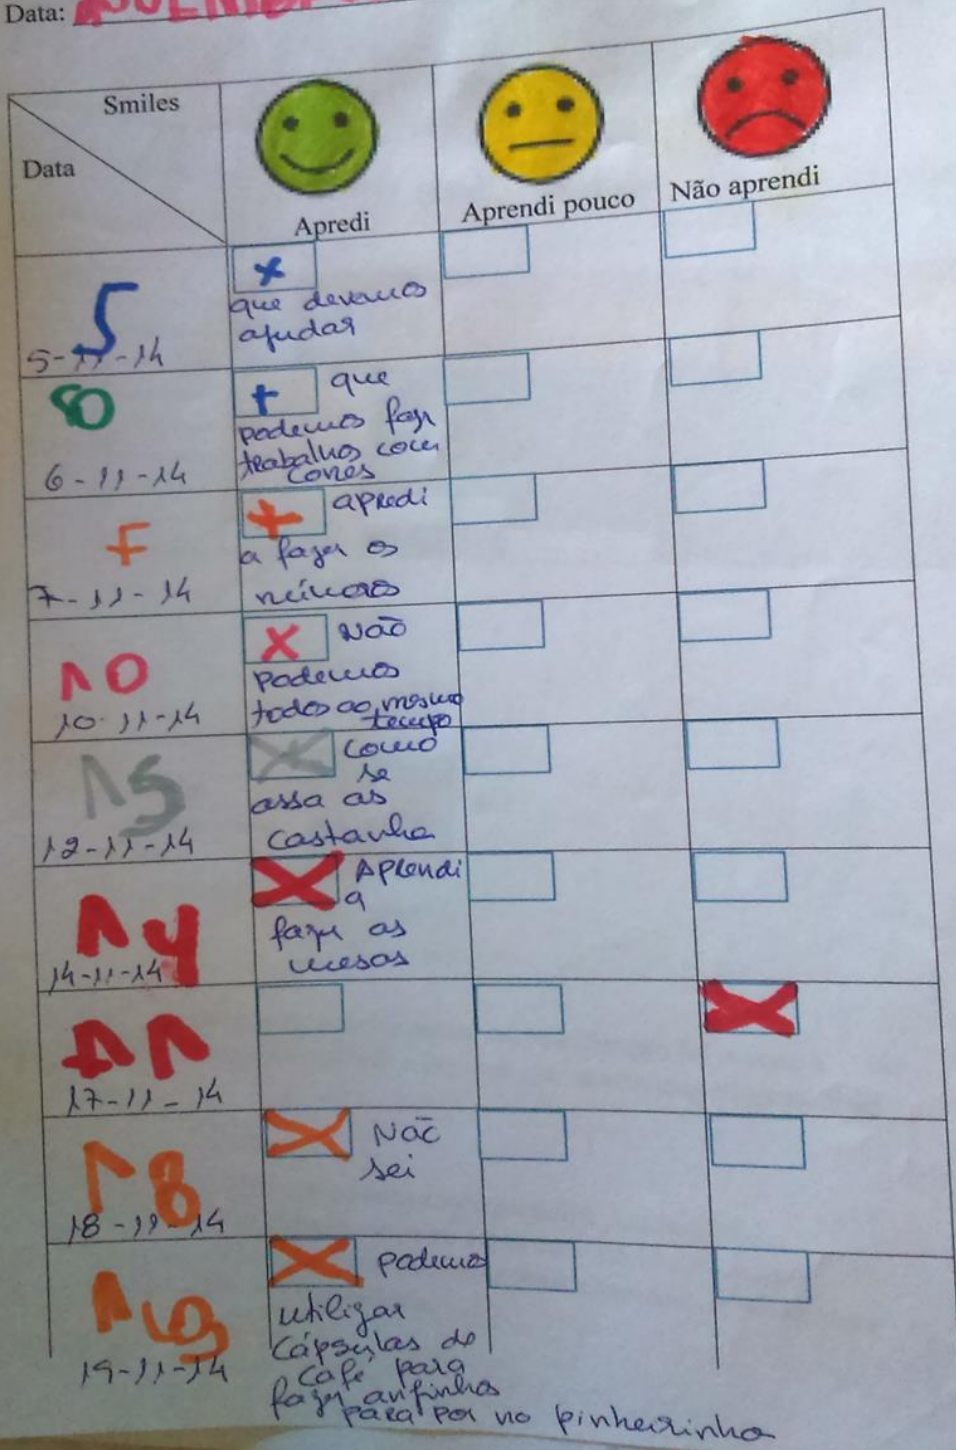 Data:
Smiles
Data
Apredi
Aprendi pouco
Não aprendi
5
5-11-14
x
que devemos
ajudar
6-11-14
+
que
podemos fazer
trabalhos com
cores
7-11-14
+
apredi
a fazer os
números
10
10-11-14
x
Não
podemos
todos ao mesmo
tempo
15
12-11-14
x
como
se
assa as
castanha
14
14-11-14
x
Aprendi
a
fazer as
mesas
17-11-14
x
18
18-11-14
x
Não
sei
19
19-11-14
x
podemos
utilizar
cápsulas de
café para
fazer anjinhos
para por no pinheirinho